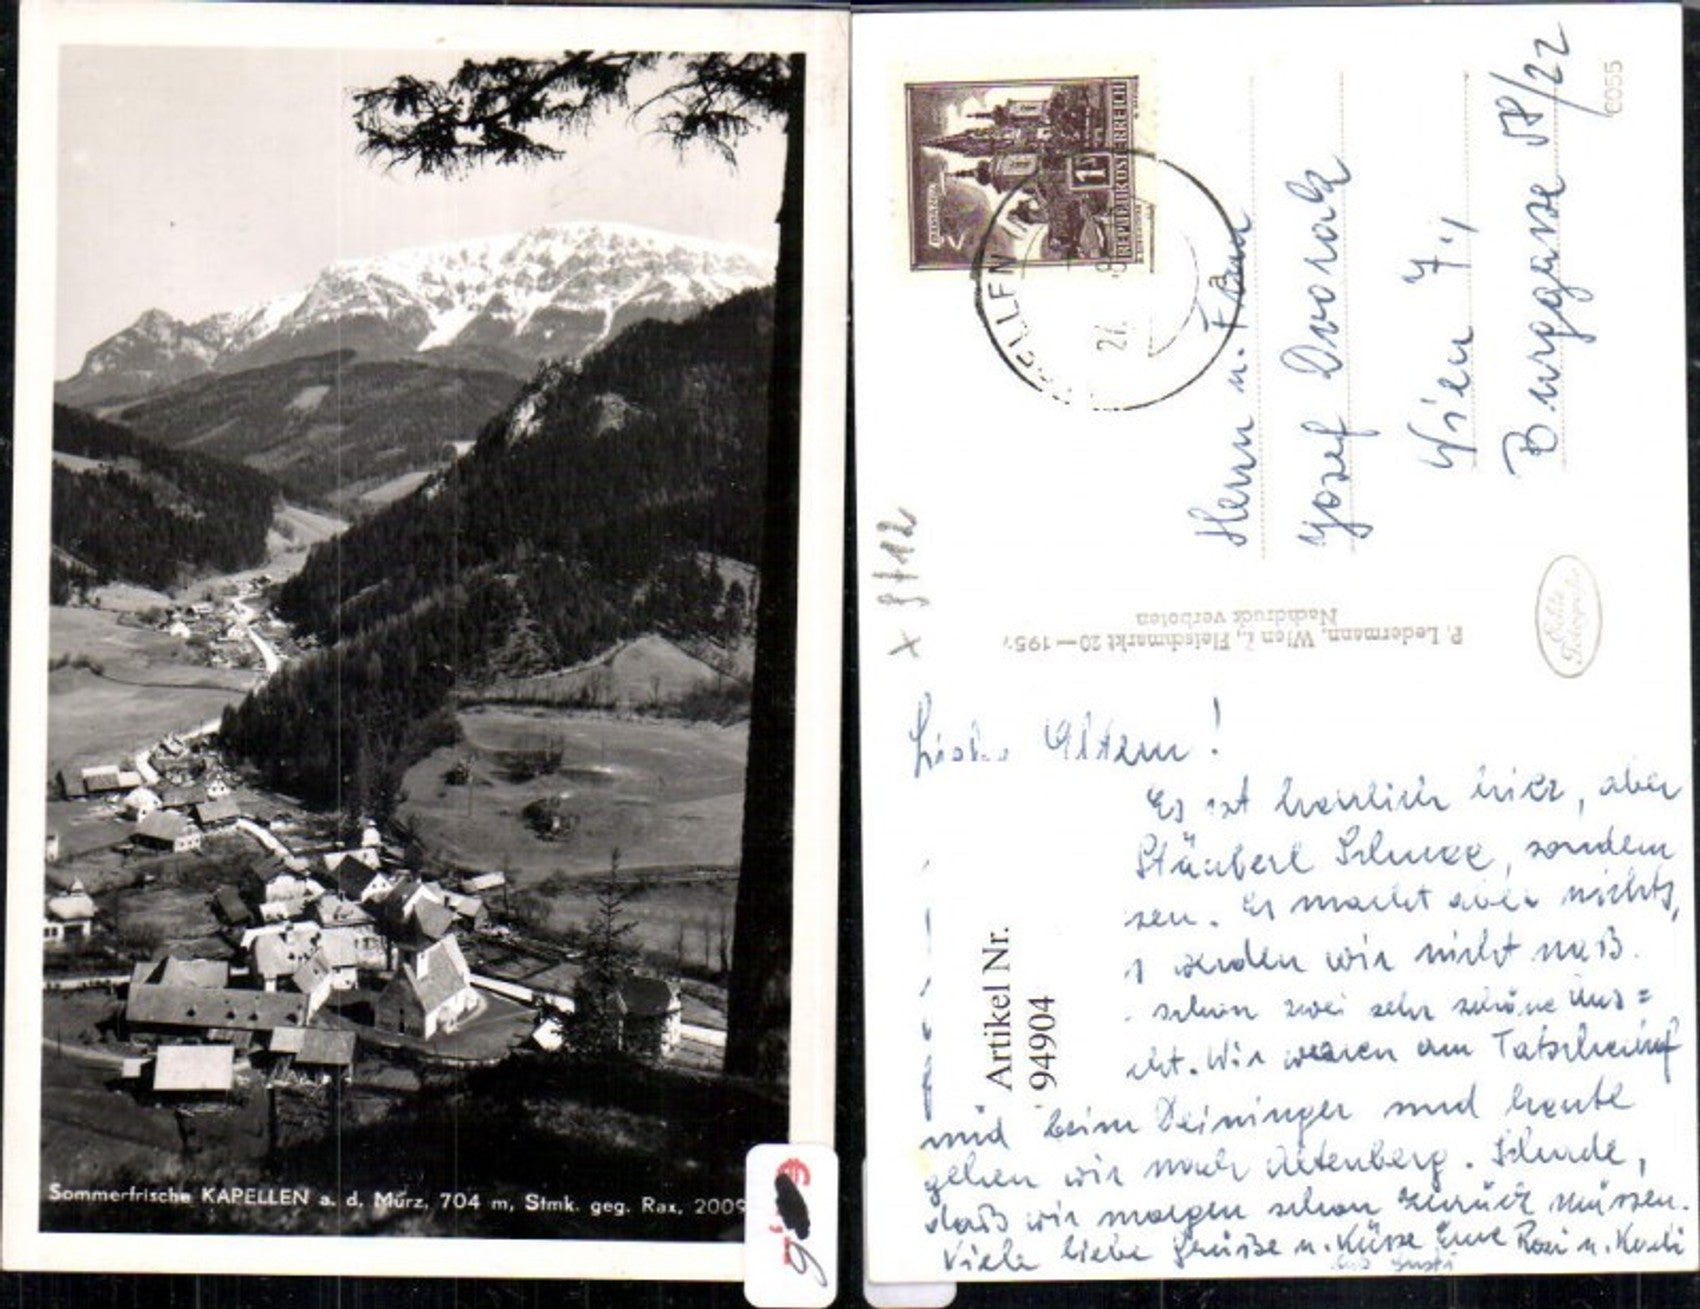 Sommerfrische KAPELLEN a. d. Mürz, 704 m, Stmk. geg. Rax, 2009
REPUBLIK ÖSTERREICH
1
27.
a
Herrn u. Frau
Josef Dvorak
Wien 7.,
Burggasse 58/22
6055
x 8112
P. Ledermann, Wien I., Fleischmarkt 20—195
Nachdruck verboten
Echte
Fotografie
Liebe Eltern!
Es ist herrlich hier, aber
Stüberl Schnee, sondern
sen. Es macht aber nichts,
werden wir nicht naß.
schon zwei sehr schöne Aus=
cht. Wir waren am
und beim Deininger und heute
gehen wir nach Altenberg. Schade,
daß wir morgen schon zurück müssen.
Viele liebe Grüße u. Küsse Eure Rosi u. Karli
Artikel Nr.
94904